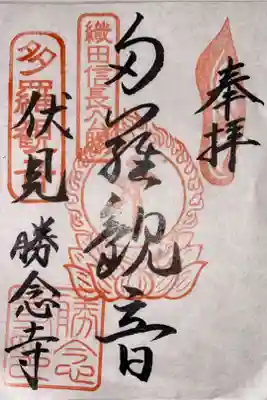 奉拝
織田信長公賜
多羅観音
多羅観音
伏見 勝念寺
勝念